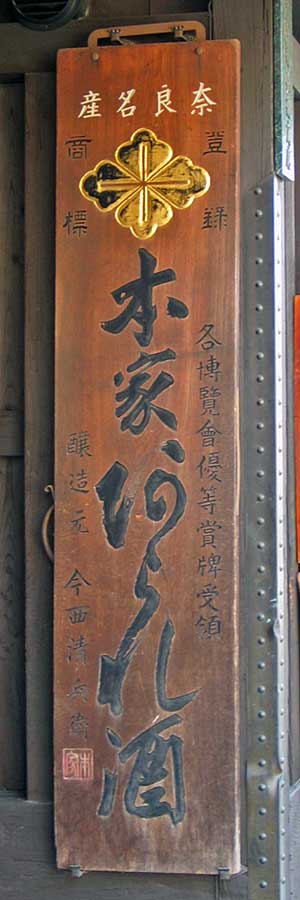 奈良名産
登録
商標
各博覧會優等賞牌受領
本家あられ酒
醸造元 今西清兵衛
本家